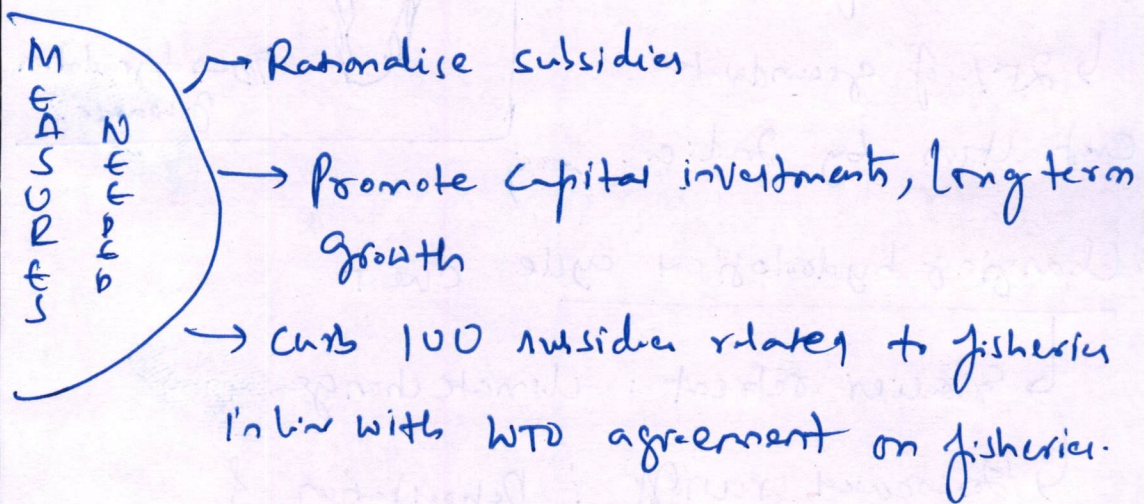 MEASURES
NEEDED
→ Rationalise subsidies
→ Promote capital investments, long term
growth
→ Curb IUU subsidies related to fisheries
in line with WTO agreement on fisheries.